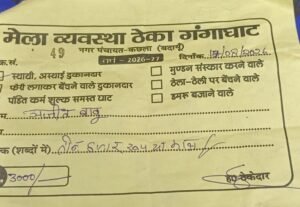 मेला व्यवस्था ठेका गंगाघाट
49 नगर पंचायत-कछला (बदायूं)
क.सं. वर्ष - 2026-27 दिनांक 19/08/2026
स्थायी, अस्थाई दुकानदार
मुण्डन संस्कार करने वाले
फोरी लगाकर बेंचने वाले दुकानदार
ठेला-ठेली पर बेंचने वाले
पंडित कर्म शुल्क समस्त घाट
डमरू बजाने वाले
म अजीत बाबू
क (शब्दों में) तीन हजार रूपये मात्र
3000/-
ह0 ठेकेदार